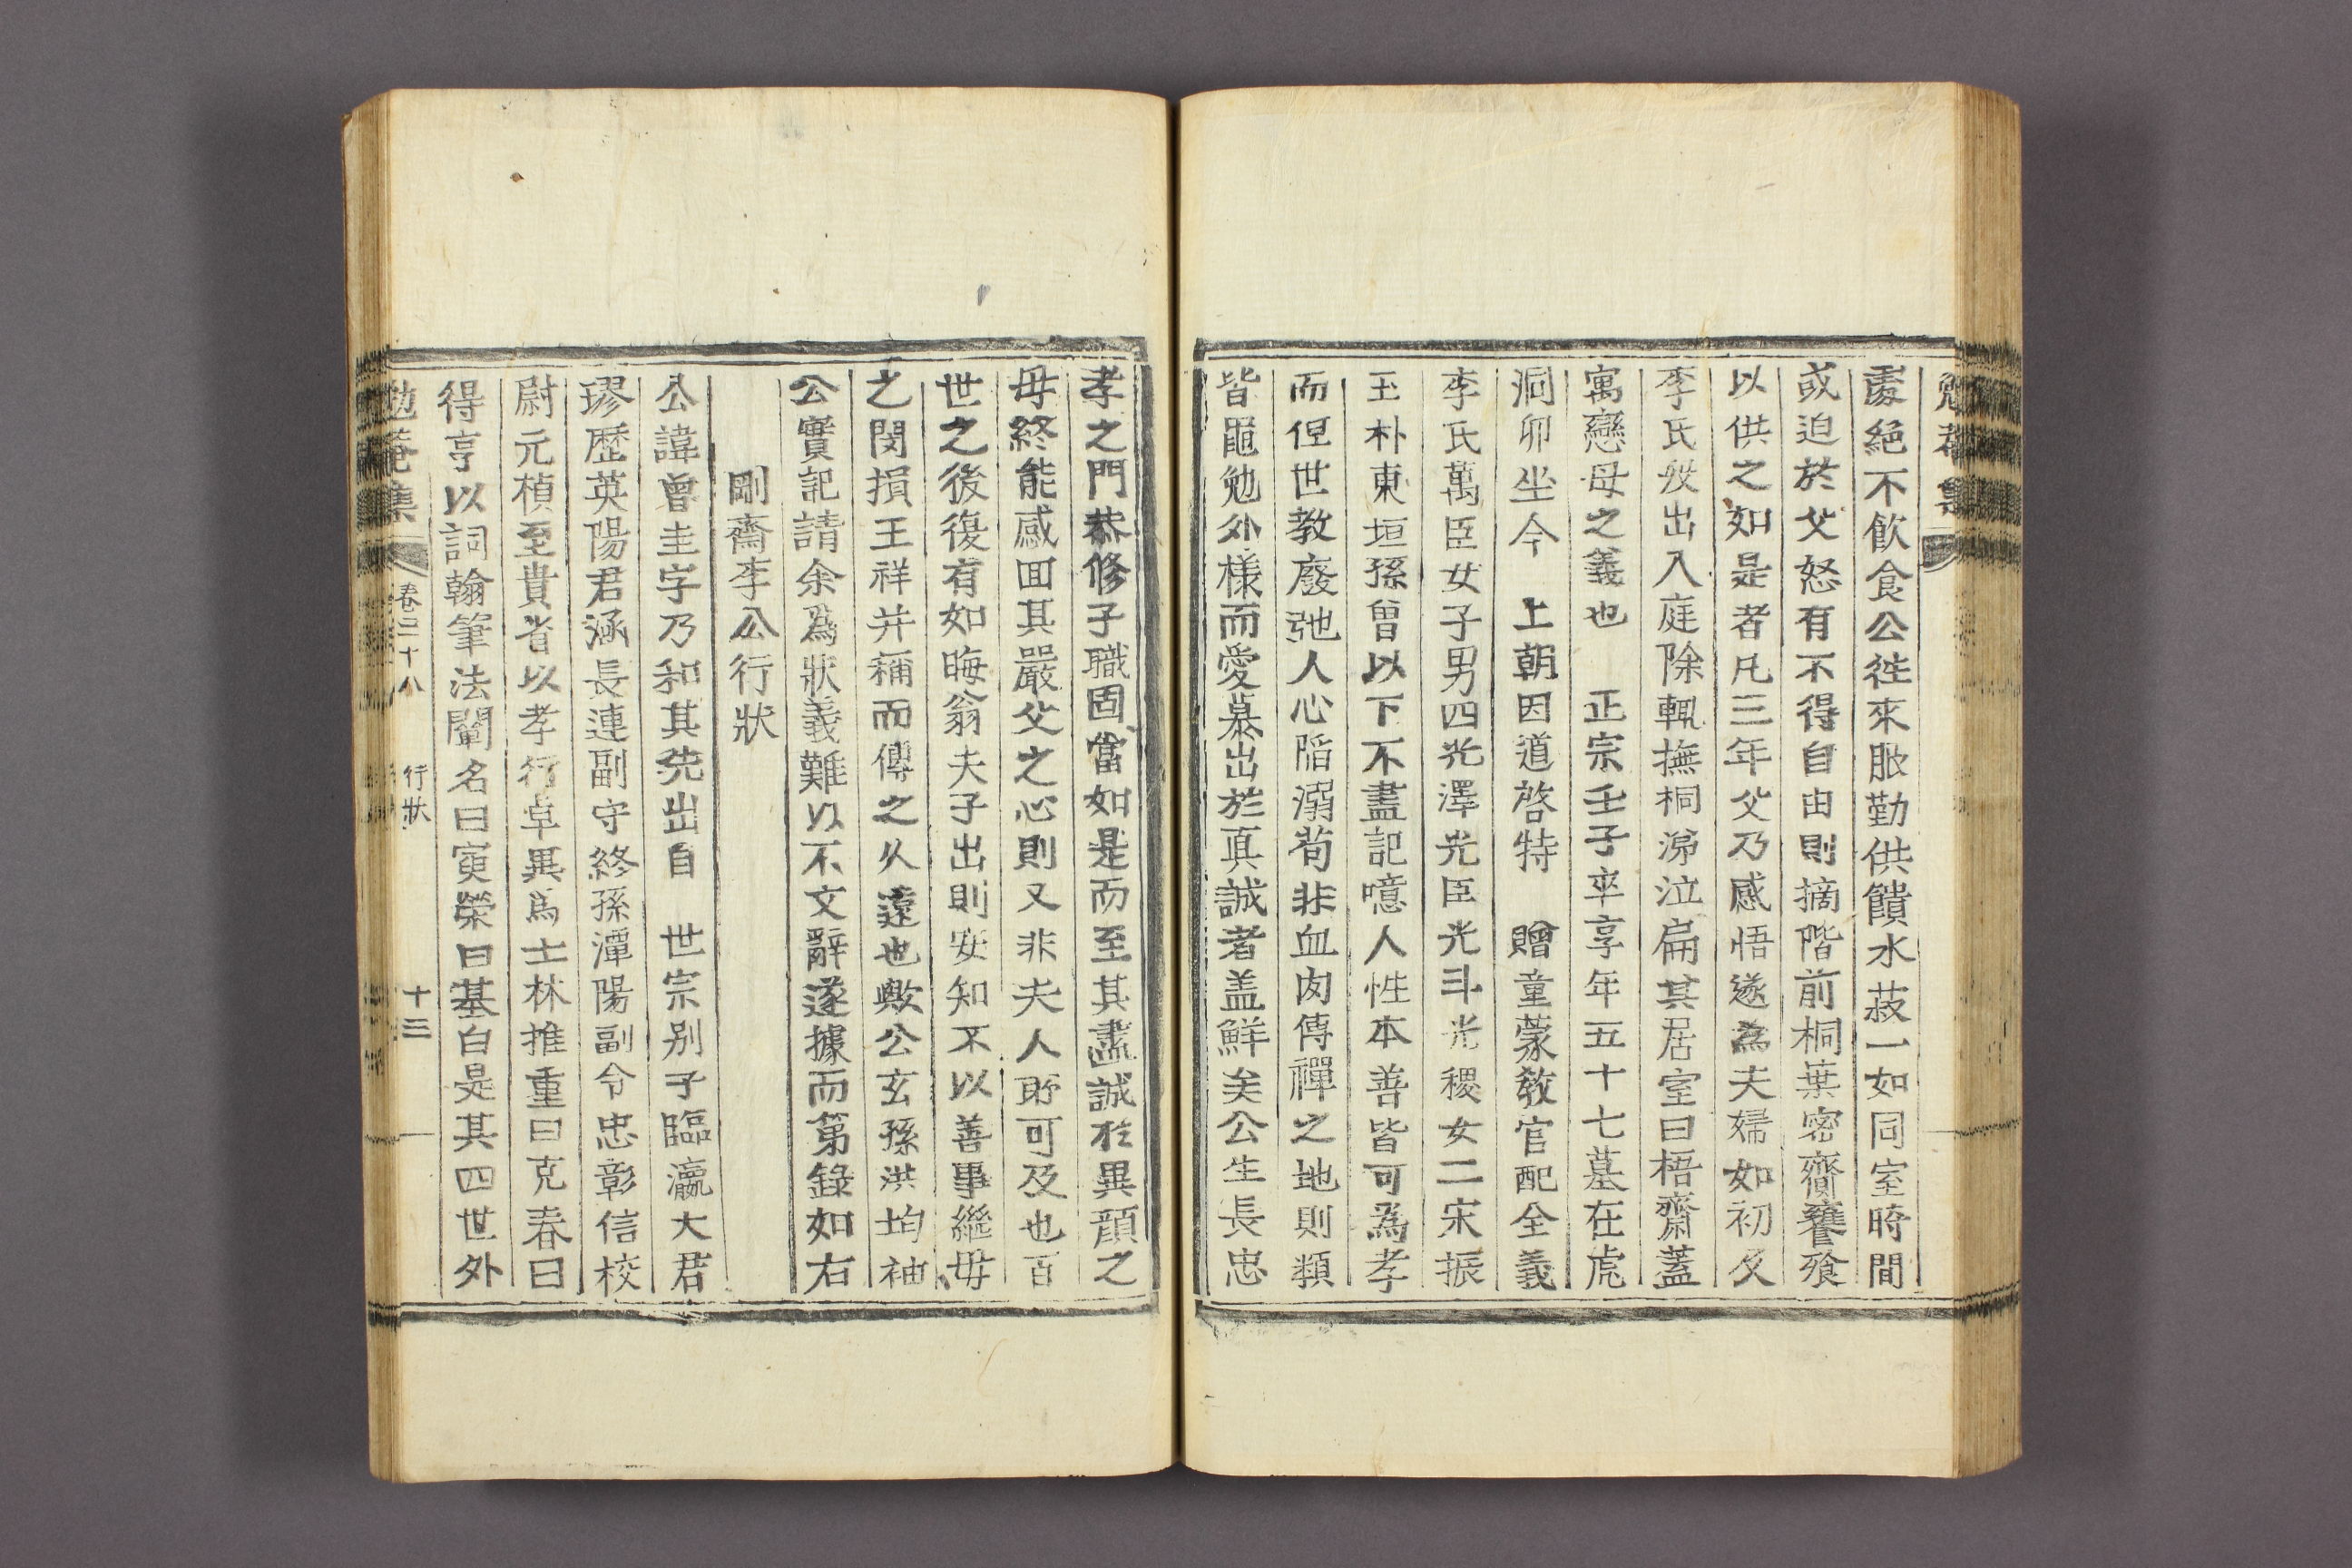 勉菴集
處絕不飮食公徃來服勤供饋水菽一如同室時間
或迫於父怒有不得自由則摘階前桐葉密齎饔飱
以供之如是者凡三年父乃感悟遂為夫婦如初及
李氏歿出入庭除輒撫桐涕泣扁其居室曰梧齋蓋
寓戀母之義也 正宗壬子卒享年五十七墓在虎
洞卯坐今 上朝因道啓特 贈童蒙敎官配全義
李氏萬臣女子男四光澤光臣光斗光稷女二宋振
玉朴東垣孫曾以下不盡記噫人性本善皆可為孝
而但世敎廢弛人心陷溺苟非血肉傳禪之地則類
皆黽勉外樣而愛慕出於眞誠者盖鮮矣公生長忠
孝之門恭修子職固當如是而至其盡誠於異顔之
母終能感回其嚴父之心則又非夫人所可及也百
世之後復有如晦翁夫子出則安知不以善事繼母
之閔損王祥并稱而傳之久遠也歟公玄孫洪均袖
公實記請余爲狀義難以不文辭遂據而第錄如右
剛齋李公行狀
公諱曾圭字乃和其先出自 世宗别子臨瀛大君
璆歷英陽君涵長連副守終孫潭陽副令忠彰信校
尉元楨至貴省以孝行卓異爲士林推重曰克春曰
得亨以詞翰筆法闡名曰寅榮曰基白是其四世外
勉菴集
卷二十八
行狀
十三